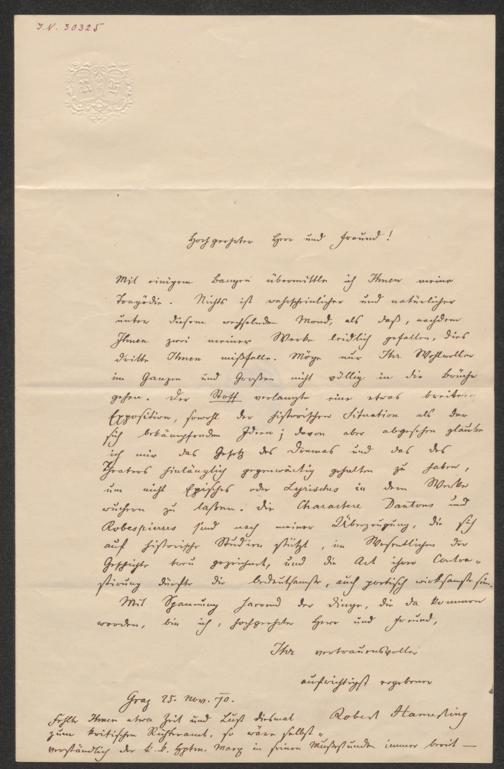 I.N. 30325
Hochgeehrter Herr und Freund!
Mit einigem Bangen übermittle ich Ihnen meine
Tragödie. Nichts ist wahrscheinlicher und natürlicher
unter diesem wechselnden Mond, als daß, nachdem
Ihnen zwei meiner Werke leidlich gefallen, dies
dritte Ihnen mißfalle. Möge nur Ihr Wohlwollen
im Ganzen und Großen nicht völlig in die Brüche
gehen. Der Stoff verlangte eine etwas breitere
Exposition, sowohl der historischen Situation als der
sich bekämpfenden Ideen; davon aber abgesehen glaube
ich mir das Gesetz des Dramas und das des
Theaters hinlänglich gegenwärtig gehalten zu haben,
um nicht Episches oder Lyrisches in dem Werke
wuchern zu lassen. Die Charactere Dantons und
Robespierres sind nach meiner Überzeugung, die sich
auf historische Studien stützt, im Wesentlichen der
Geschichte treu gezeichnet, und die Art ihrer Contra-
stirung dürfte die bedeutsamste, auch poetisch wirksamste sein.
Mit Spannung harrend der Dinge, die da kommen
werden, bin ich, hochgeehrter Herr und Freund,
Ihr vertrauensvoller
aufrichtigst ergebener
Graz 25. Nov. 70.
Robert Hamerling
Fehlt Ihnen etwa Zeit und Lust diesmal
zum kritischen Richteramt, so wäre selbst-
verständlich der k. k. Hptm. Marx in seinen Mußestunden immer bereit —